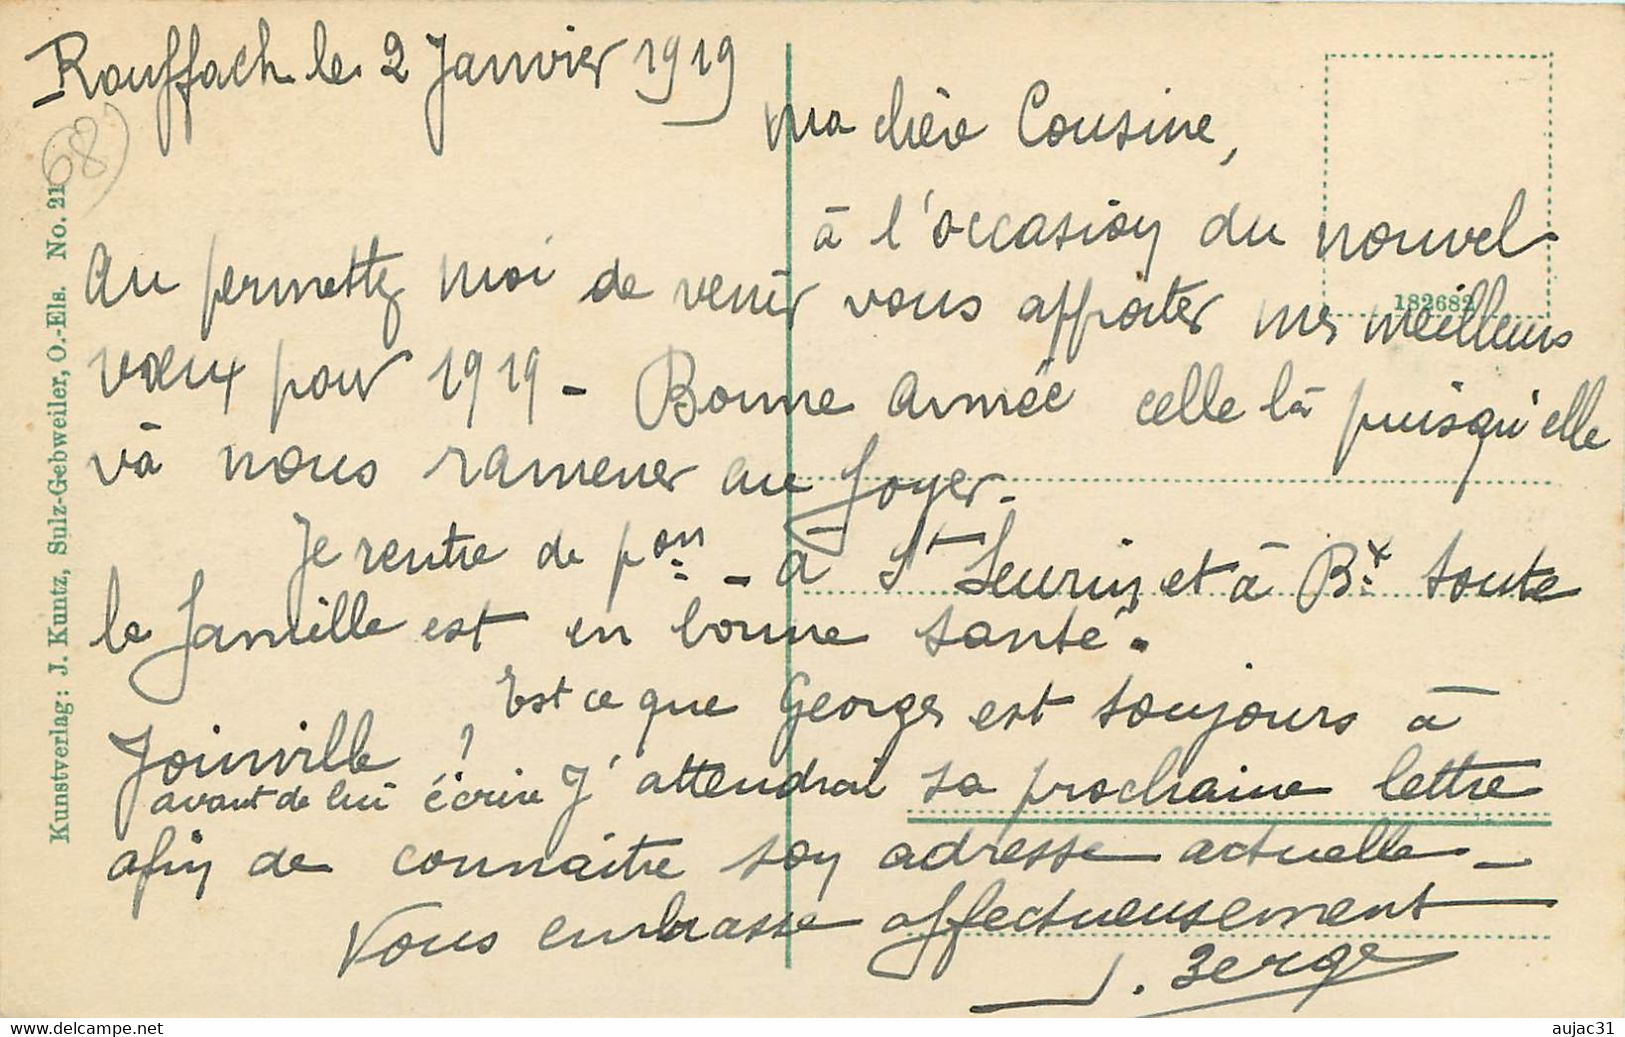 Rouffach le 2 Janvier 1919
Ma chère Cousine,
à l'occasion du nouvel
an permettez moi de venir vous apporter mes meilleurs
vœux pour 1919 - Bonne Année celle là puisqu'elle
và nous ramener au foyer.
Je rentre de pon - à St Seurin et à Bx toute
la famille est en bonne santé.
Est ce que Georges est toujours à
Joinville ?
avant de lui écrire J'attendrai sa prochaine lettre
afin de connaitre son adresse actuelle -
Vous embrasse affectueusement
J. Berge
(68)
182682
Kunstverlag: J. Kuntz, Sulz-Gebweiler, O.-Els. No. 21
https://www.delcampe.net
aujac31